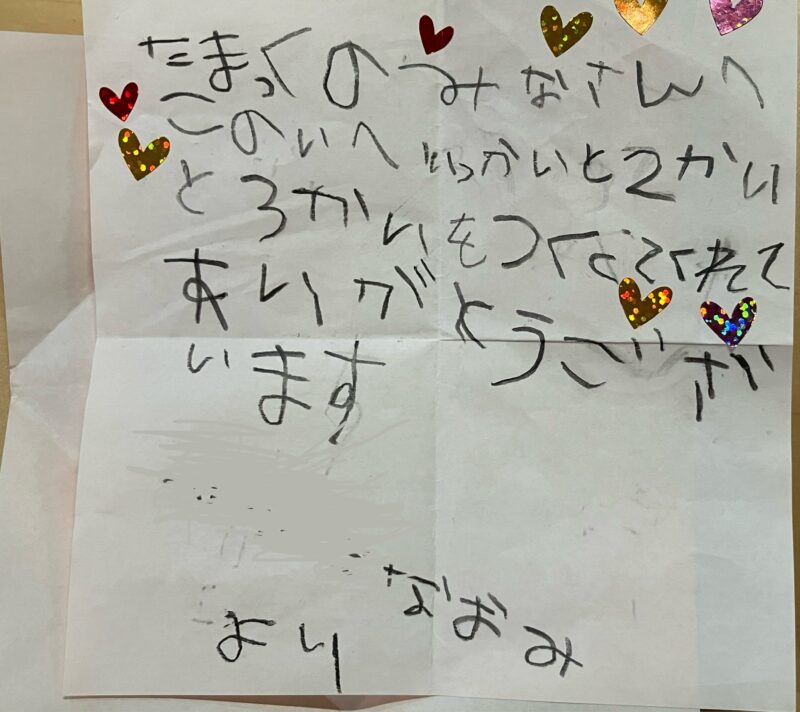 たまっくのみなさんへ
このいへいっかいと2かい
と3かいをつくてくれて
ありがとうござ
います
なおみ
より